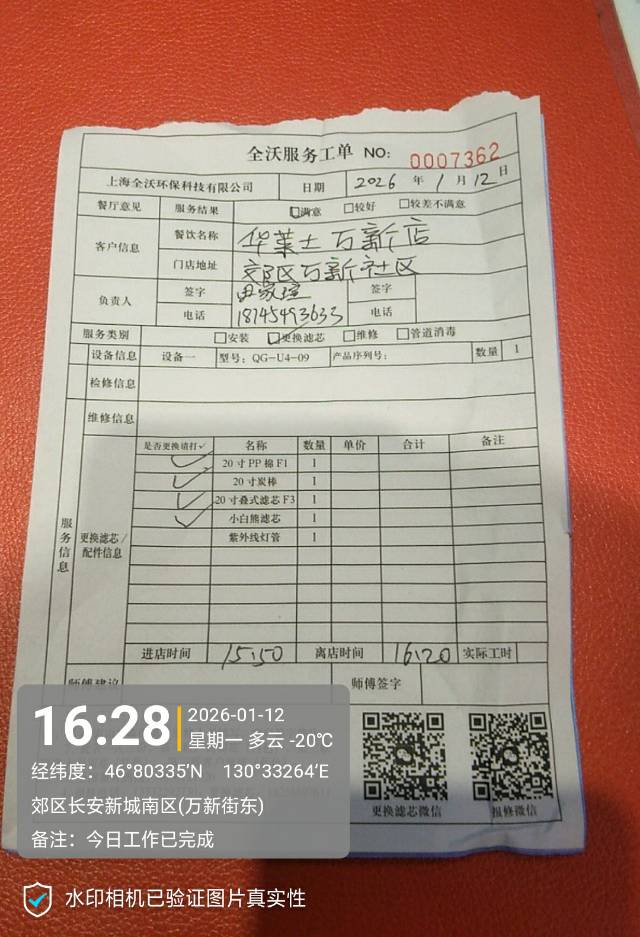 全沃服务工单 NO: 0007362
上海全沃环保科技有限公司 日期 2026 年 1 月 12 日
餐厅意见 服务结果 满意 较好 较差不满意
客户信息 餐饮名称 华莱士万新店
门店地址 郊区万新社区
负责人 签字 签字
电话 18745493633 电话
服务类别 安装 更换滤芯 维修 管道消毒
设备信息 设备一 型号: QG-U4-09 产品序列号: 数量 1
检修信息
维修信息
服务信息
更换滤芯/配件信息
是否更换请打✓ 名称 数量 单价 合计 备注
✓ 20寸PP棉F1 1
✓ 20寸炭棒 1
✓ 20寸叠式滤芯F3 1
✓ 小白熊滤芯 1
紫外线灯管 1
进店时间 15:50 离店时间 16:20 实际工时
师傅建议 师傅签字
更换滤芯微信 报修微信
16:28
2026-01-12
星期一 多云 -20℃
经纬度: 46°80335′N 130°33264′E
郊区长安新城南区(万新街东)
备注: 今日工作已完成
水印相机已验证图片真实性